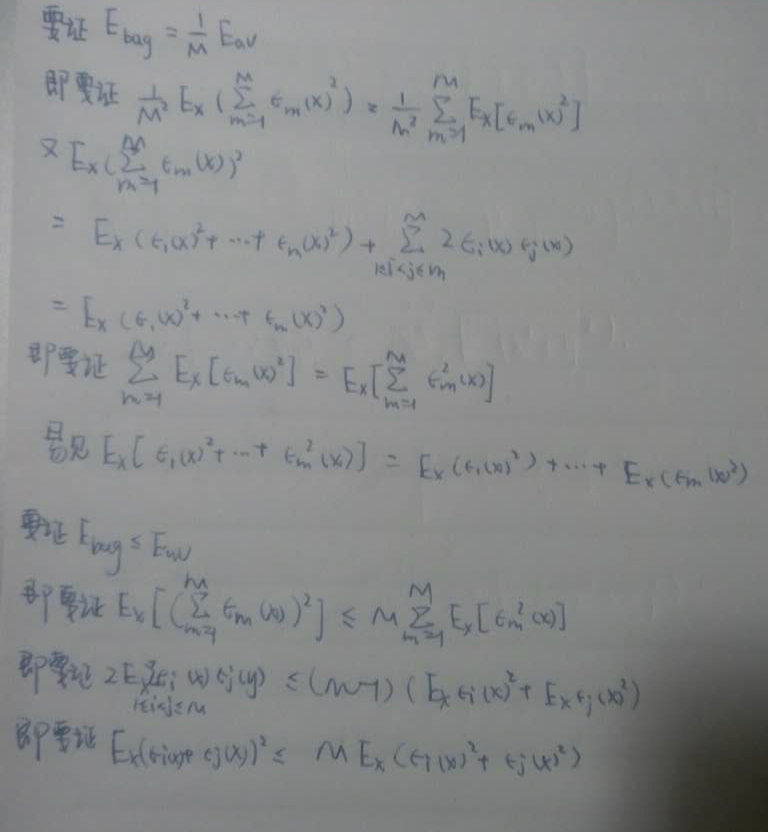 要证 E_bag = 1/M E_av
即要证 1/M² E_x (∑_{m=1}^{M} ϵ_m(x)²) = 1/M² ∑_{m=1}^{M} E_x[ϵ_m(x)²]
又 E_x(∑_{m=1}^{M} ϵ_m(x))²
= E_x (ϵ_1(x)² + ⋯ + ϵ_m(x)²) + ∑_{1≤i<j≤m}^{M} 2ϵ_i(x) ϵ_j(x)
= E_x (ϵ_1(x)² + ⋯ + ϵ_m(x)²)
即要证 ∑_{m=1}^{M} E_x[ϵ_m(x)²] = E_x[∑_{m=1}^{M} ϵ_m²(x)]
易见 E_x[ϵ_1(x)² + ⋯ + ϵ_m²(x)] = E_x(ϵ_1(x)²) + ⋯ + E_x(ϵ_m(x)²)
要证 E_bag ≤ E_av
即要证 E_x[(∑_{m=1}^{M} ϵ_m(x))²] ≤ M ∑_{m=1}^{M} E_x[ϵ_m²(x)]
即要证 2E_x∑_{1≤i<j≤M} ϵ_i(x) ϵ_j(y) ≤ (M-1)(E_x ϵ_i(x)² + E_x ϵ_j(x)²)
即要证 E_x(ϵ_i(x)+ϵ_j(x))² ≤ M E_x(ϵ_i(x)² + ϵ_j(x)²)